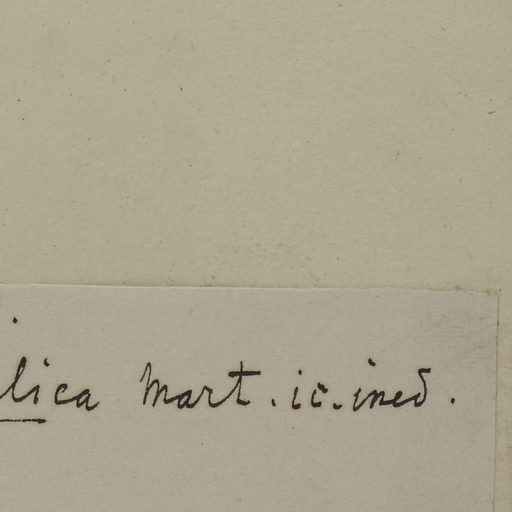 lica Mart. ic. ined.